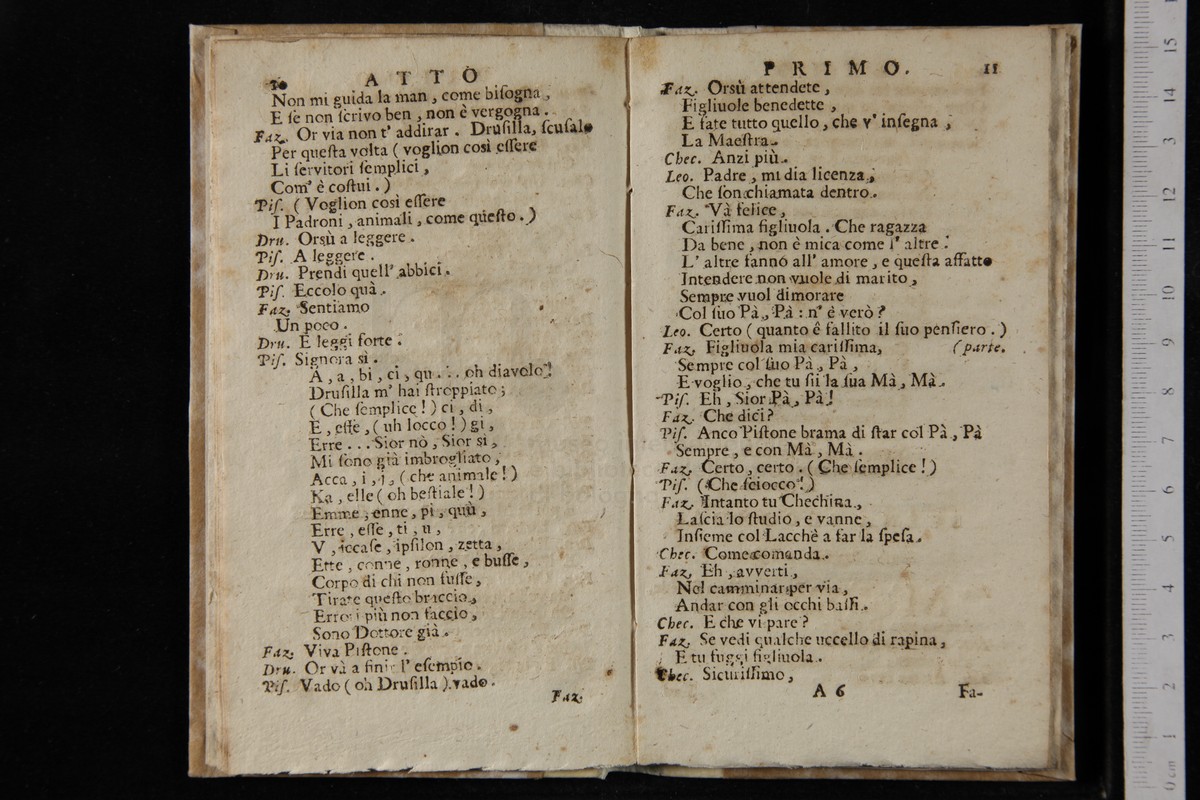 10 ATTO
Non mi guida la man, come biſogna,
E ſe non ſcrivo ben, non è vergogna.
Faz. Or via non t' addirar. Druſilla, ſcuſalo
Per queſta volta (voglion così eſſere
Li ſervitori ſemplici,
Com' è coſtui.)
Piſ. (Voglion così eſſere
I Padroni, animali, come queſto.)
Dru. Orsù a leggere.
Piſ. A leggere.
Dru. Prendi quell' abbici.
Piſ. Eccolo quà.
Faz. Sentiamo
Un poco.
Dru. E leggi forte.
Piſ. Signora sì.
A, a, bi, ci, qu... oh diavolo!
Druſilla m' hai ſtroppiato;
(Che ſemplice!) ci, di,
E, effe, (uh locco!) gi,
Erre... Sior nò, Sior sì,
Mi ſono già imbrogliato,
Acca, i, j, (che animale!)
Ka, elle (oh beſtiale!)
Emme, enne, pi, quù,
Erre, eſſe, ti, u,
V, iccaſe, ipſilon, zetta,
Ette, conne, ronne, e buſſe,
Corpo di chi non fuſſe,
Tirate queſto braccio,
Errori più non faccio,
Sono Dottore già.
Faz. Viva Piſtone.
Dru. Or và a finir l' eſempio.
Piſ. Vado (oh Druſilla) vado.
Faz.
PRIMO. 11
Faz. Orsù attendete,
Figliuole benedette,
E fate tutto quello, che v' inſegna,
La Maeſtra.
Chec. Anzi più.
Leo. Padre, mi dia licenza,
Che ſon chiamata dentro.
Faz. Và felice,
Cariſſima figliuola. Che ragazza
Da bene, non è mica come l' altre.
L' altre fanno all' amore, e queſta affatto
Intendere non vuole di marito,
Sempre vuol dimorare
Col ſuo Pà, Pà: n' è verò?
Leo. Certo (quanto è fallito il ſuo penſiero.)
Faz. Figliuola mia cariſſima, (parte.
Sempre col ſuo Pà, Pà,
E voglio, che tu ſii la ſua Mà, Mà.
Piſ. Eh, Sior Pà, Pà!
Faz. Che dici?
Piſ. Anco Piſtone brama di ſtar col Pà, Pà
Sempre, e con Mà, Mà.
Faz. Certo, certo. (Che ſemplice!)
Piſ. (Che ſciocco!)
Faz. Intanto tu Chechina,
Laſcia lo ſtudio, e vanne,
Inſieme col Lacchè a far la ſpeſa.
Chec. Come comanda.
Faz. Eh, avverti,
Nel camminar per via,
Andar con gli occhi baſſi.
Chec. E che vi pare?
Faz. Se vedi qualche uccello di rapina,
E tu fuggi figliuola.
Chec. Sicuriſſimo,
A 6 Fa-